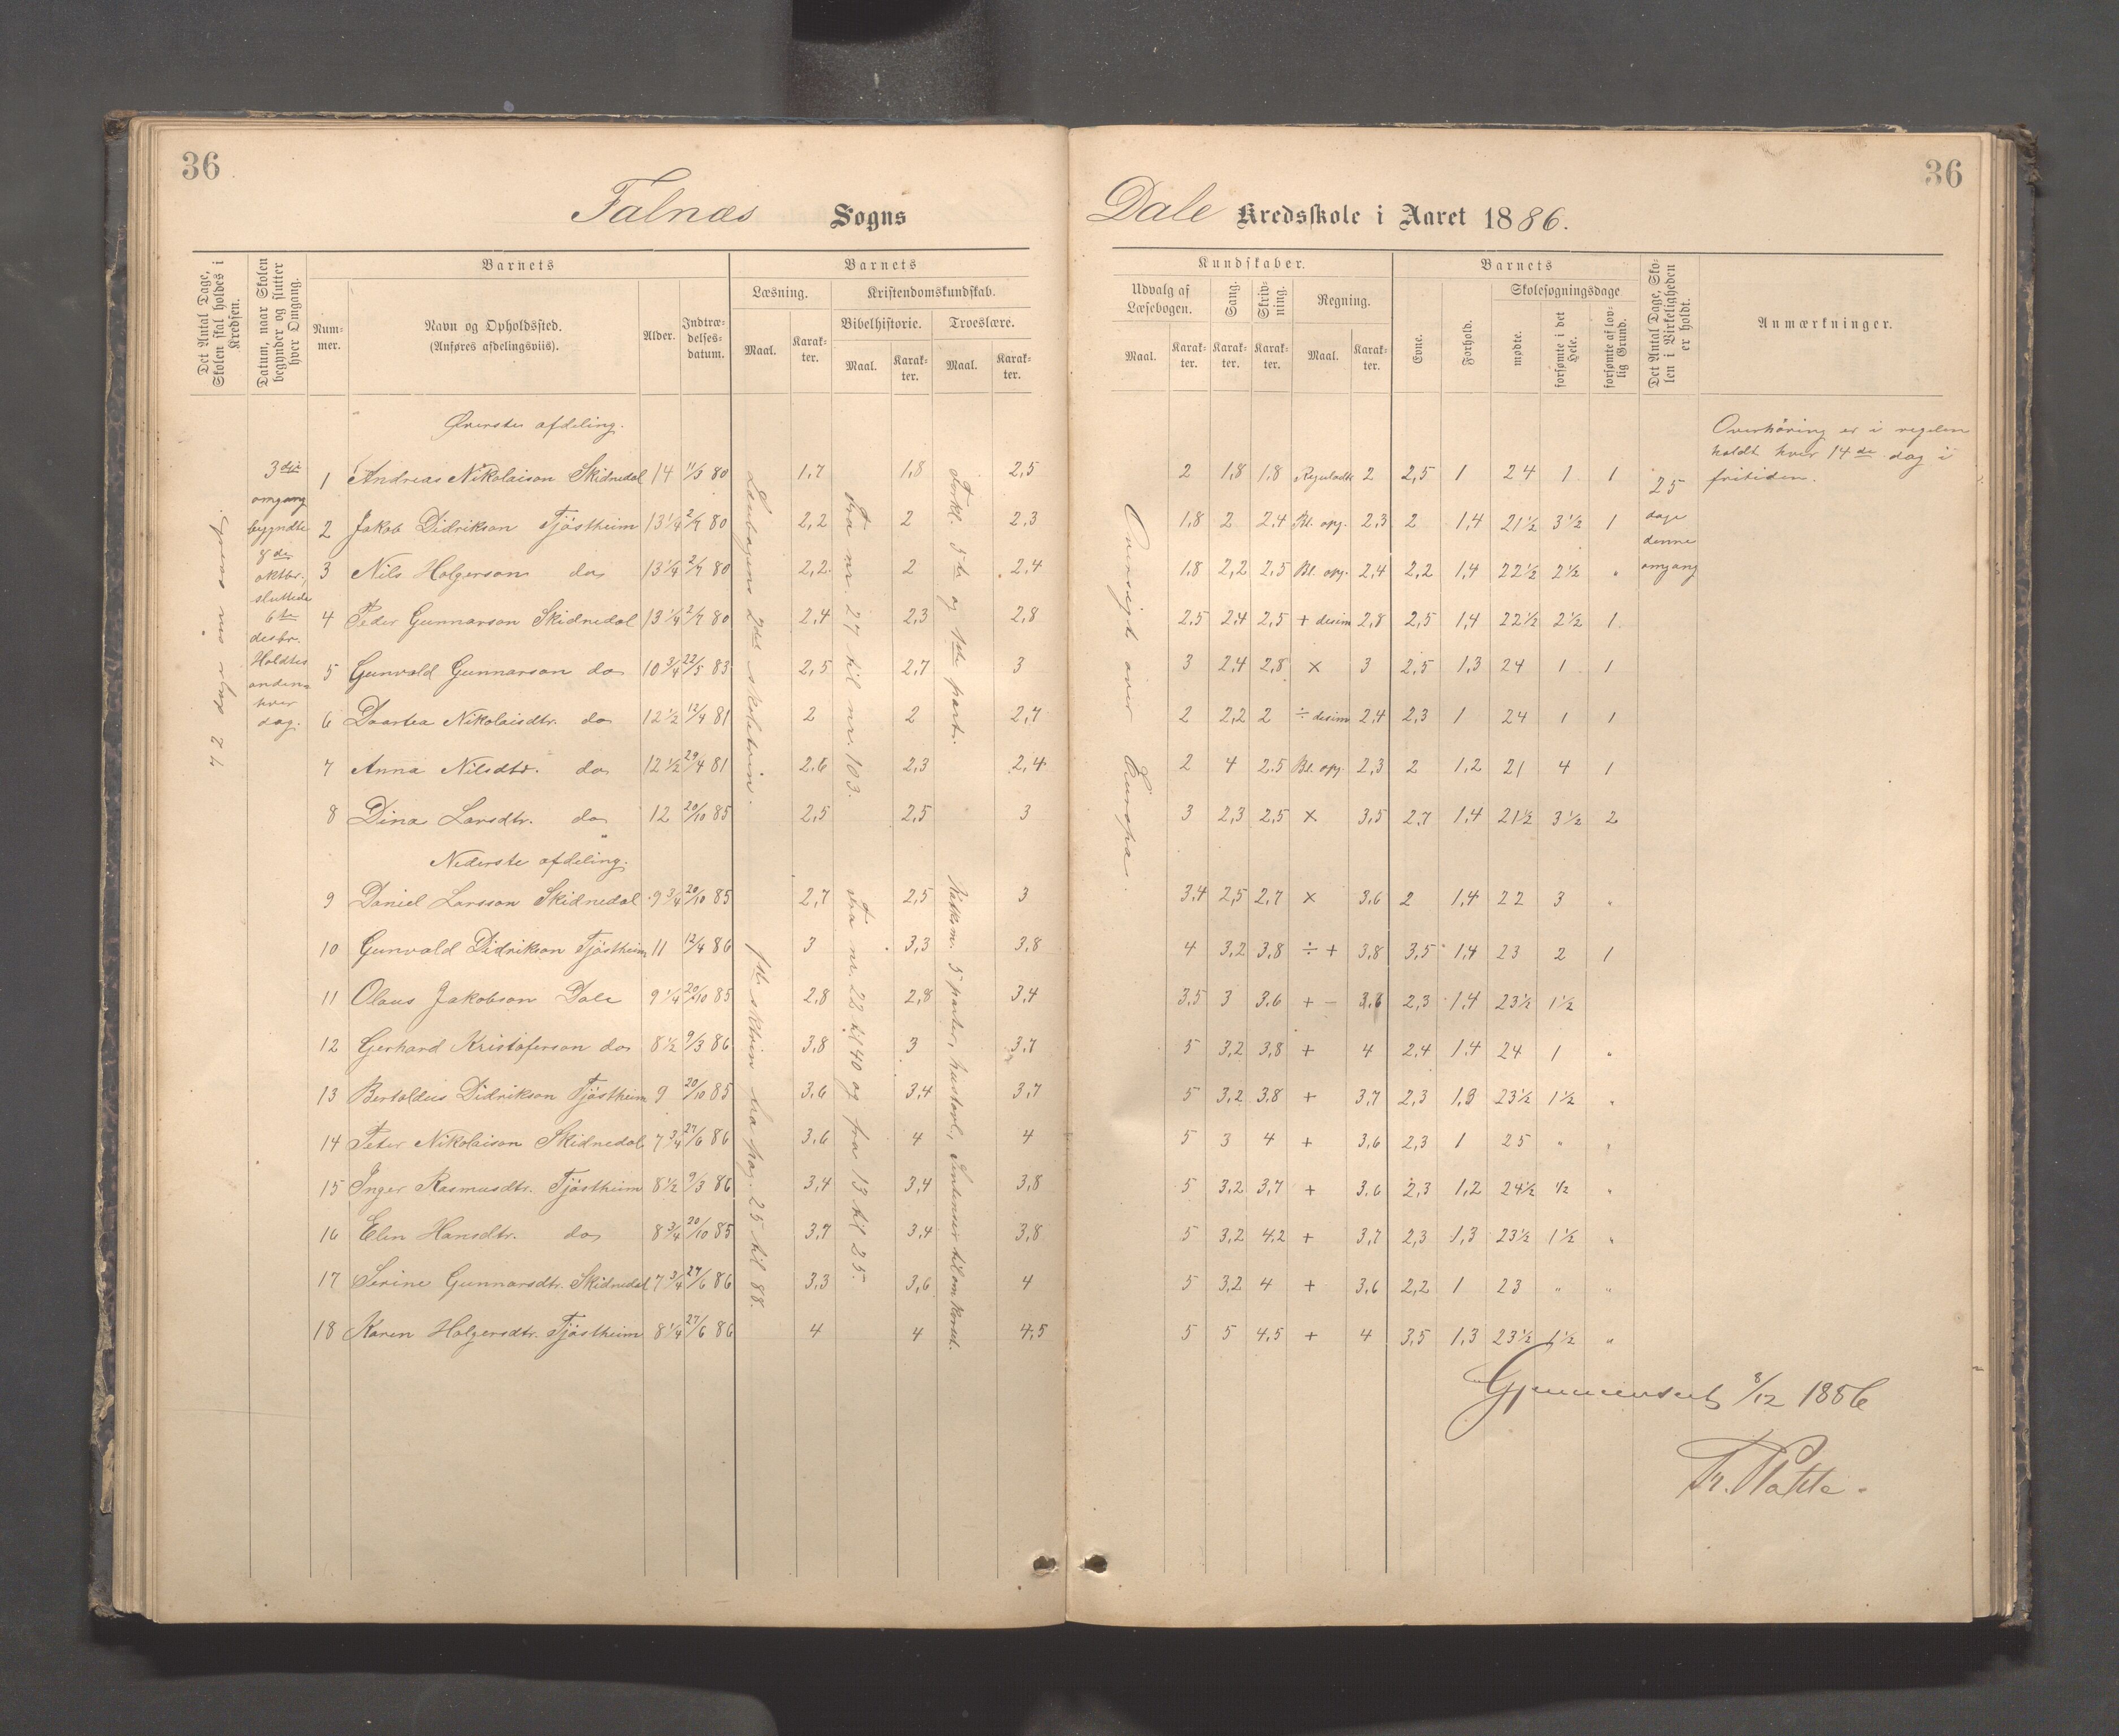 36
Falnæs Sogns
Det Antal Dage, Skolen skal holdes i Kredsen.
Datum, naar Skolen begynder og slutter hver Omgang.
Barnets
Num- mer.
Navn og Opholdssted.
(Anføres afdelingsviis).
Alder.
Indtræ- delses- datum.
Barnets
Læsning.
Maal.
Karak- ter.
Kristendomskundskab.
Bibelhistorie.
Maal.
Karak- ter.
Troeslære.
Maal.
Karak- ter.
3die
omgang
begyndte
8de
oktbr.,
sluttede
6te
desbr.
Holdtes
anden-
hver
dag.
Øverste afdeling.
1 Andreas Nikolaison Skidnedal 14 11/3 80 1,7 1,8 2,5
2 Jakob Didrikson Tjøstheim 13 1/4 2/7 80 2,2 2 2,3
3 Nils Holgerson do 13 1/4 2/7 80 2,2 2 2,4
4 Peder Gunnarson Skidnedal 13 1/4 2/7 80 2,4 2,3 2,8
5 Gunvald Gunnarson do 10 3/4 22/5 83 2,5 2,7 3
6 Daartea Nikolaisdtr. do 12 1/2 12/4 81 2 2 2,7
7 Anna Nilsdtr. do 12 1/2 29/4 81 2,6 2,3 2,4
8 Dina Larsdtr. do 12 20/10 85 2,5 2,5 3
Læsebogens 2det skoletrin.
Fra nr. 27 til nr. 103.
Forkl. 5te og 1ste part.
Nederste afdeling.
9 Daniel Larsson Skidnedal 9 3/4 20/10 85 2,7 2,5 3
10 Gunvald Didrikson Tjøstheim 11 12/4 86 3 3,3 3,8
11 Olaus Jakobson Dale 9 1/4 20/10 85 2,8 2,8 3,4
12 Gerhard Kristoferson do 8 1/2 9/3 86 3,8 3 3,7
13 Bertoldus Didrikson Tjøstheim 9 20/10 85 3,6 3,4 3,7
14 Peter Nikolaison Skidnedal 7 3/4 27/6 86 3,6 4 4
15 Inger Rasmusdtr. Tjøstheim 8 1/2 9/3 86 3,4 3,4 3,8
16 Elen Hansdtr. do 8 3/4 20/10 85 3,7 3,4 3,8
17 Serine Gunnarsdtr. Skidnedal 7 3/4 27/6 86 3,3 3,6 4
18 Karen Holgersdtr. Tjøstheim 8 1/4 27/6 86 4 4 4,5
1ste sktrin fra pag. 25 til 88.
Fra nr. 22 til 40 og fra 13 til 25.
Katkism. 5 parter, hustavl., Sentenser til om Kored.
36
Dale Kredsskole i Aaret 1886.
Kundskaber.
Udvalg af Læsebogen.
Maal.
Karak- ter.
Sang.
Karak- ter.
Skriv- ning.
Karak- ter.
Regning.
Maal.
Karak- ter.
Barnets
Evne.
Forhold.
Skolesøgningsdage
mødte.
forsømte i det Hele.
forsømte af lov- lig Grund.
Det Antal Dage, Sko- len i Virkeligheden er holdt.
Anmærkninger.
Overhøring er i regelen
holdt hver 14de dag i
fritiden.
25
dage
denne
omgang
Oversigt over Europa.
2 1,8 1,8 Reguladt. 2 2,5 1 24 1 1
1,8 2 2,4 Bl. opg. 2,3 2 1,4 21 1/2 3 1/2 1
1,8 2,2 2,5 Bl. opg. 2,4 2,2 1,4 22 1/2 2 1/2 "
2,5 2,4 2,5 + desim 2,8 2,5 1,4 22 1/2 2 1/2 1
3 2,4 2,8 × 3 2,5 1,3 24 1 1
2 2,2 2 ÷ desim 2,4 2,3 1 24 1 1
2 4 2,5 Bl. opg. 2,3 2 1,2 21 4 1
3 2,3 2,5 × 3,5 2,7 1,4 21 1/2 3 1/2 2
3,4 2,5 2,7 × 3,6 2 1,4 22 3 "
4 3,2 3,8 ÷ + 3,8 3,5 1,4 23 2 1
3,5 3 3,6 + - 3,6 2,3 1,4 23 1/2 1 1/2
5 3,2 3,8 + 4 2,4 1,4 24 1 "
5 3,2 3,8 + 3,7 2,3 1,3 23 1/2 1 1/2 "
5 3 4 + 3,6 2,3 1 25 " "
5 3,2 3,7 + 3,6 2,3 1,2 24 1/2 1/2 "
5 3,2 4,2 + 3,7 2,3 1,3 23 1/2 1 1/2 "
5 3,2 4 + 3,6 2,2 1 23 " "
5 5 4,5 + 4 3,5 1,3 23 1/2 1 1/2 "
Gjennemseet 8/12 1886